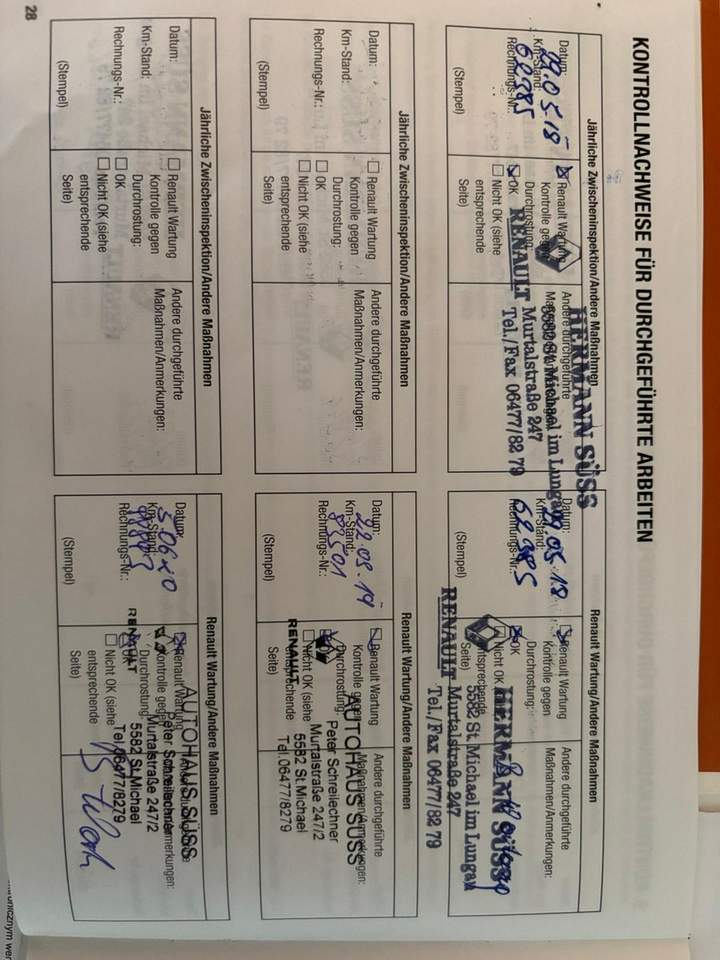 KONTROLLNACHWEISE FÜR DURCHGEFÜHRTE ARBEITEN
Jährliche Zwischeninspektion/Andere Maßnahmen
Datum:
09.05.18
Km-Stand:
62985
Rechnungs-Nr.:
Renault Wartung
Kontrolle gegen
Durchrostung:
OK
Nicht OK (siehe
entsprechende
Seite)
Andere durchgeführte
HERMANN SÜSS
5582 St. Michael im Lungau
Murtalstraße 247
Tel./Fax 06477/82 79
RENAULT
Renault Wartung/Andere Maßnahmen
Datum:
09.05.18
Km-Stand:
62985
Rechnungs-Nr.:
(Stempel)
Renault Wartung
Kontrolle gegen
Durchrostung:
OK
Nicht OK
entsprechende
Seite)
Andere durchgeführte
Maßnahmen/Anmerkungen:
HERMANN SÜSS
5582 St. Michael im Lungau
Murtalstraße 247
Tel./Fax 06477/82 79
RENAULT
Jährliche Zwischeninspektion/Andere Maßnahmen
Datum:
Km-Stand:
Rechnungs-Nr.:
(Stempel)
Renault Wartung
Kontrolle gegen
Durchrostung:
OK
Nicht OK (siehe
entsprechende
Seite)
Andere durchgeführte
Maßnahmen/Anmerkungen:
Renault Wartung/Andere Maßnahmen
Datum:
Km-Stand:
83501
Rechnungs-Nr.:
(Stempel)
Renault Wartung
Kontrolle gegen
Durchrostung:
Nicht OK (siehe
entsprechende
Seite)
Andere durchgeführte
Maßnahmen/Anmerkungen:
AUTOHAUS SÜSS
Peter Schreilechner
Murtalstraße 247/2
5582 St.Michael
Tel.06477/8279
RENAULT
Jährliche Zwischeninspektion/Andere Maßnahmen
Datum:
Km-Stand:
Rechnungs-Nr.:
(Stempel)
Renault Wartung
Kontrolle gegen
Durchrostung:
OK
Nicht OK (siehe
entsprechende
Seite)
Andere durchgeführte
Maßnahmen/Anmerkungen:
Renault Wartung/Andere Maßnahmen
Datum:
Km-Stand:
Rechnungs-Nr.:
(Stempel)
Renault Wartung
Kontrolle gegen
Durchrostung:
OK
Nicht OK (siehe
entsprechende
Seite)
AUTOHAUS SÜSS
Peter Schreilechner
Murtalstraße 247/2
5582 St.Michael
Tel.06477/8279
RENAULT
28